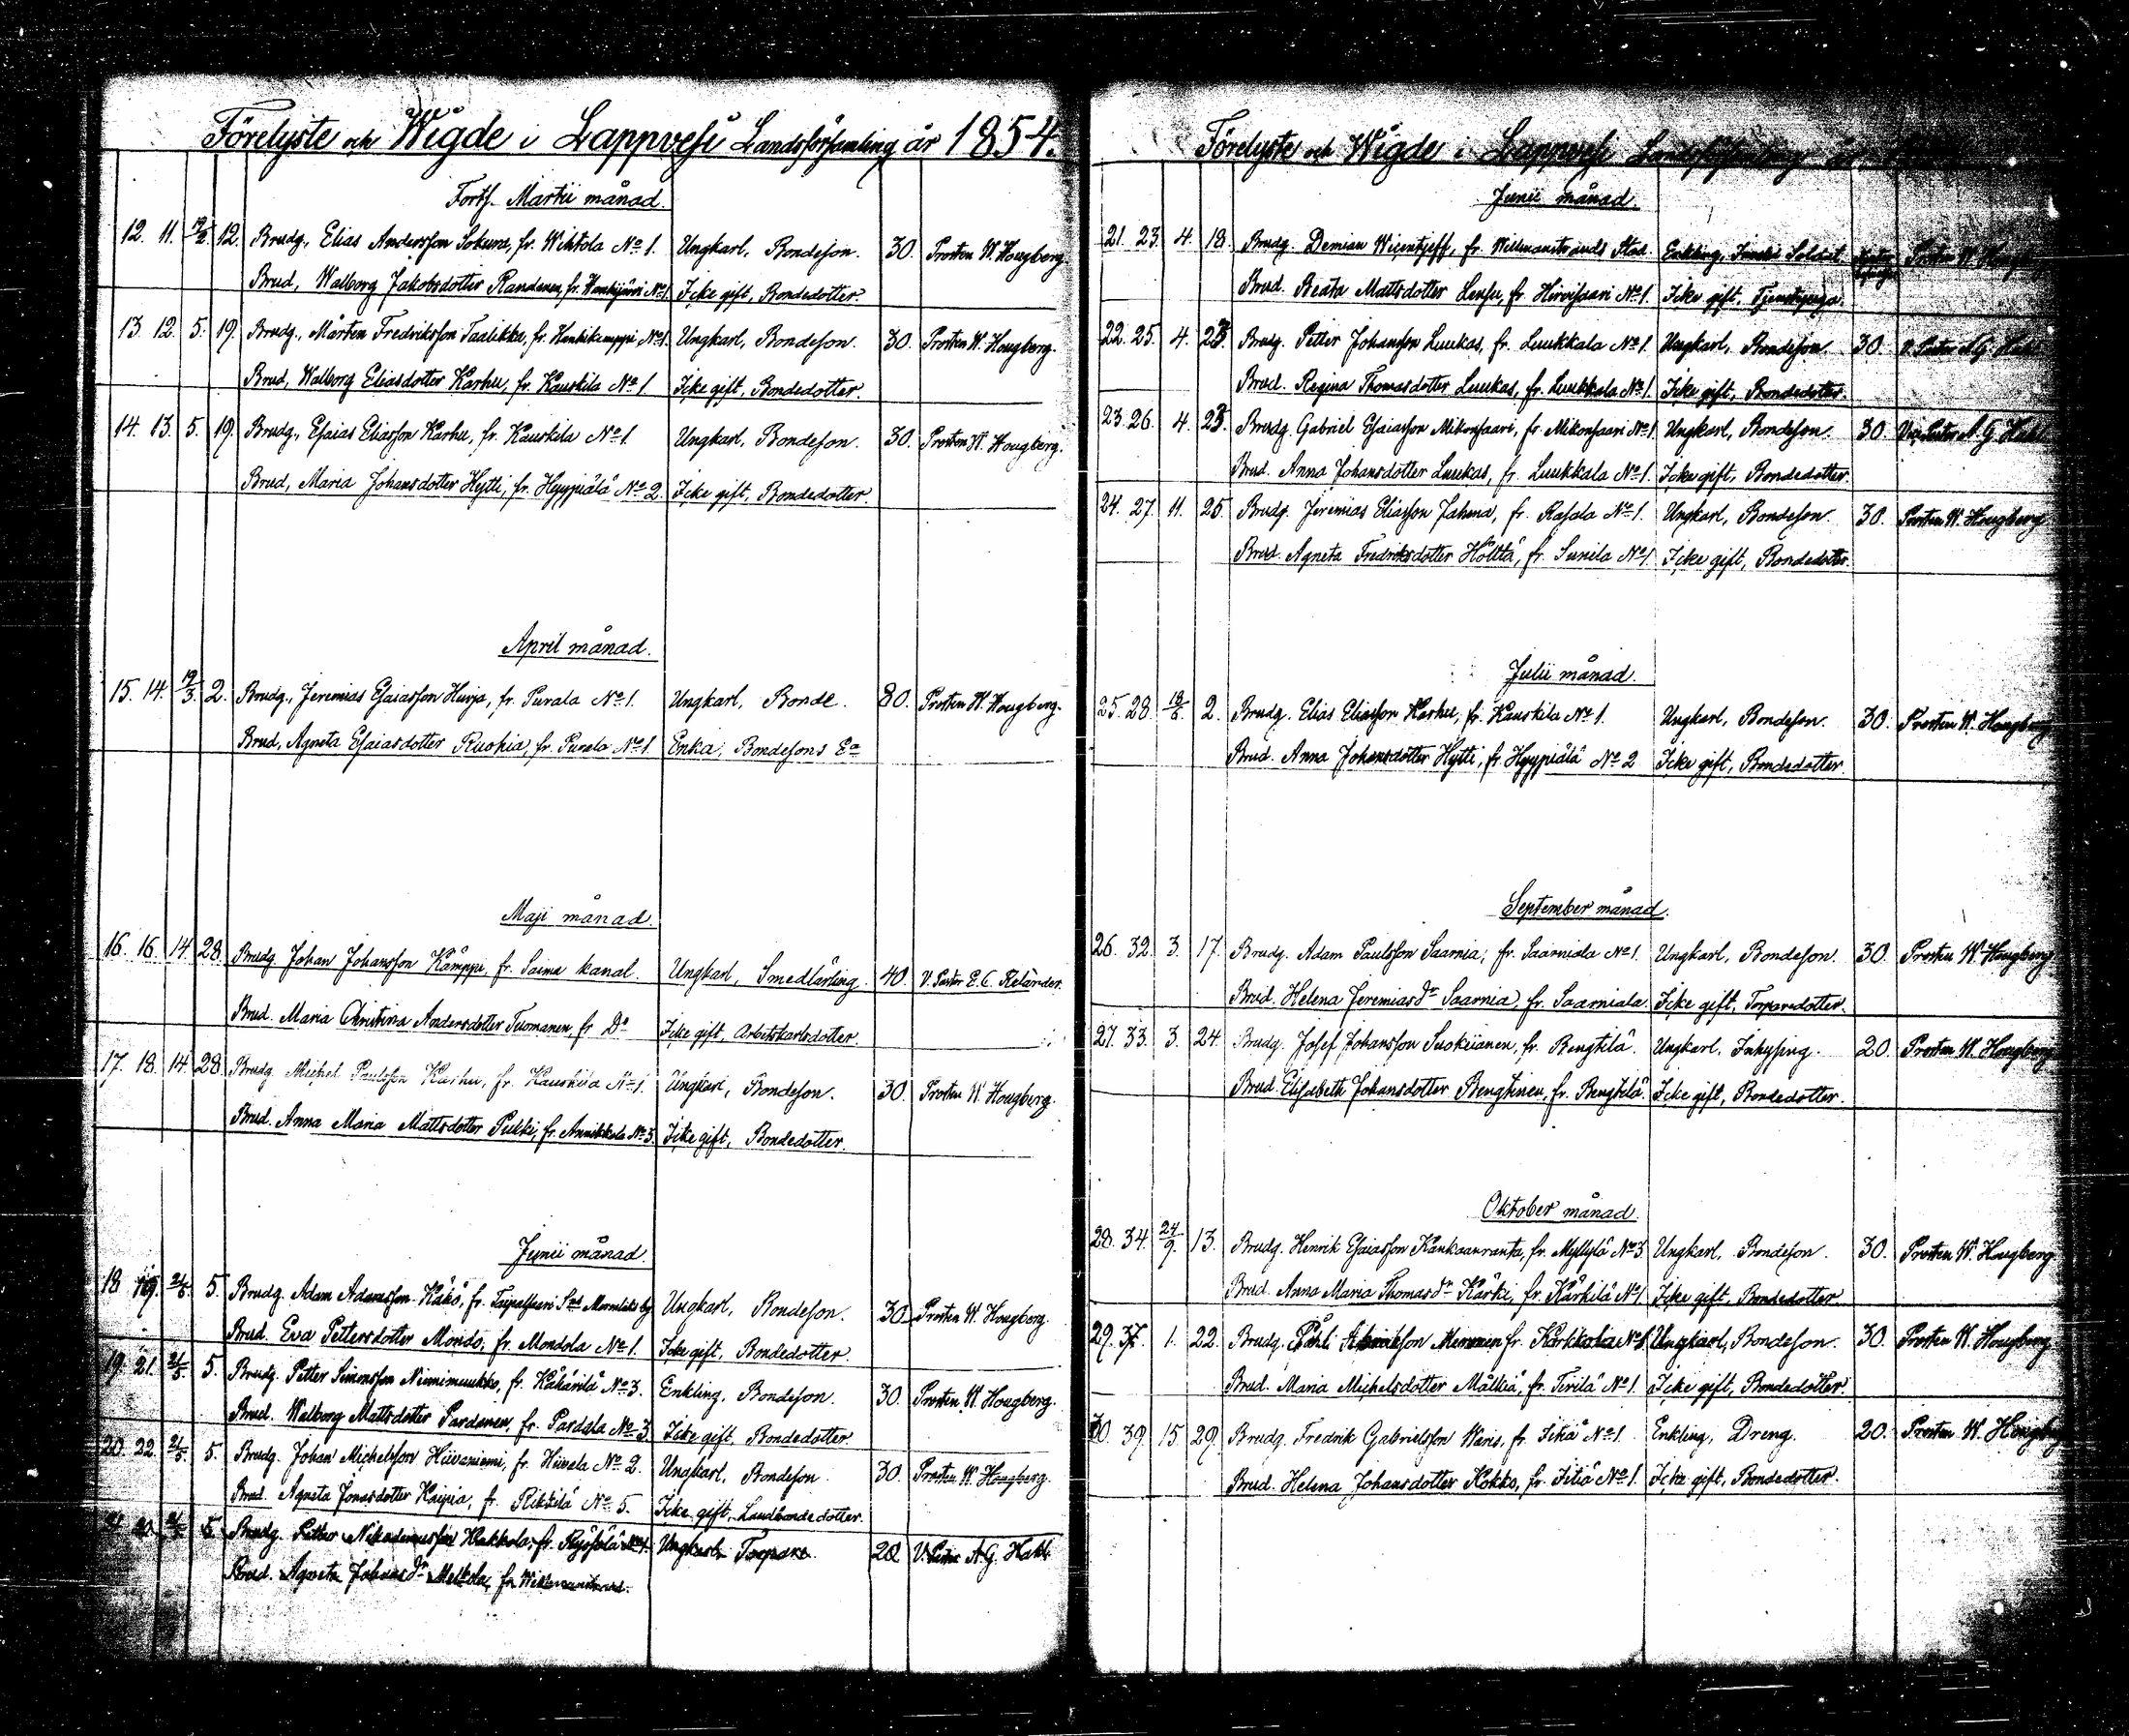 Förelyste och Wigde i Lappvesi Landsförsamling år 1854.
Forts. Martii månad.
12. 11. 19/2 12. Brudg., Elias Andersson Sokura, fr. Wihtola No 1. Ungkarl, Bondeson. 30. Prosten W. Hougberg.
Brud, Walborg Jakobsdotter Randanen, fr. No 1. Icke gift, Bondedotter.
13. 12. 5. 19. Brudg., Mårten Fredriksson Taalikka, fr. Hanhikemppi No 1. Ungkarl, Bondeson. 30. Prosten W. Hougberg.
Brud, Walborg Eliasdotter Karhu, fr. Kauskila No 1. Icke gift, Bondedotter.
14. 13. 5. 19. Brudg., Esaias Eliasson Karhu, fr. Kauskila No 1. Ungkarl, Bondeson. 30. Prosten W. Hougberg.
Brud, Maria Johansdotter Hytti, fr. Hyypiälä No 2. Icke gift, Bondedotter.
April månad.
15. 14. 19/3. 2. Brudg., Jeremias Esaiasson Hurja, fr. Purala No 1. Ungkarl, Bonde. 80. Prosten W. Hougberg.
Brud, Agneta Esaiasdotter Ruohia, fr. Purala No 1. Enka, Bondesons Ea
Maji månad.
16. 16. 14. 28. Brudg. Johan Johansson Kämppi, fr. Saima kanal. Ungkarl, Smedlärling. 40. V. Pastor E. C. Relander.
Brud. Maria Christina Andersdotter Tuomanen, fr Do Icke gift, Arbetskarlsdotter.
17. 18. 14. 28. Brudg. Michel Paulsson Karhu, fr. Kauskila No 1. Ungkarl, Bondeson. 30. Prosten W. Hougberg.
Brud. Anna Maria Mattsdotter Pukki, fr. Armikkala No 3. Icke gift, Bondedotter.
Junii månad.
18. 19. 21/5. 5. Brudg. Adam Adamsson Käkö, fr. Taipalsaari by Ungkarl, Bondeson. 30. Prosten W. Hougberg.
Brud. Eva Pettersdotter Mondo, fr. Mondola No 1. Icke gift, Bondedotter.
19. 21. 21/5. 5. Brudg. Petter Simonsson Niinimuukko, fr. Käkärilä No 3. Enkling, Bondeson. 30. Prosten W. Hougberg.
Brud. Walborg Mattsdotter Pardanen, fr. Pardala No 3. Icke gift, Bondedotter.
20. 22. 21/5. 5. Brudg. Johan Michelsson Hiivaniemi, fr. Hiivala No 2. Ungkarl, Bondeson. 30. Prosten W. Hougberg.
Brud. Agneta Jonasdotter Haipia, fr. Rikkilä No 5. Icke gift, Landbondedotter.
21. 20. 21/5 5. Brudg. Petter Nikodemusson No 1. Ungkarl, Torpare. 20 V. Pastor A. G. Hakl.
Brud. Agneta Johansdr Melkola, fr. Willmanstrand.
Förelyste och Wigde i Lappvesi Landsförsamling år
Junii månad.
21. 23. 4. 18. Brudg. Demian Wicentjeff, fr. Willmanstrands Stad. Enkling, Soldat. Prosten W. Hougberg
Brud. Beata Mattsdotter Lensu, fr. Hirvisaari No 1. Icke gift, Tjenstepiga.
22. 25. 4. 23. Brudg. Petter Johansson Luukas, fr. Luukkala No 1. Ungkarl, Bondeson. 30. V. Pastor A. G. Hakl
Brud. Regina Thomasdotter Luukas, fr. Luukkala No 1. Icke gift, Bondedotter.
23. 26. 4. 23. Brudg. Gabriel Esaiasson Mikonsaari, fr. Mikonsaari No 1. Ungkarl, Bondeson. 30. Vice Pastor A. G. Hakl
Brud. Anna Johansdotter Luukas, fr. Luukkala No 1. Icke gift, Bondedotter.
24. 27. 11. 25. Brudg. Jeremias Eliasson Jahma, fr. Rasala No 1. Ungkarl, Bondeson. 30. Prosten W. Hougberg
Brud. Agneta Fredriksdotter Hölttä, fr. Sunila No 1. Icke gift, Bondedotter.
Julii månad.
25. 28. 18/6. 2. Brudg. Elias Eliasson Karhu, fr. Kauskila No 1. Ungkarl, Bondeson. 30. Prosten W. Hougberg
Brud. Anna Johansdotter Hytti, fr. Hyypiälä No 2 Icke gift, Bondedotter.
September månad.
26. 32. 3. 17. Brudg. Adam Paulsson Saarnia, fr. Saarniala No 1. Ungkarl, Bondeson. 30. Prosten W. Hougberg
Brud. Helena Jeremiasdr Saarnia, fr. Saarniala. Icke gift, Torparedotter.
27. 33. 3. 24. Brudg. Josef Johansson Suokiianen, fr. Bengtilä. Ungkarl, Inhysing. 20. Prosten W. Hougberg
Brud. Elisabeth Johansdotter Bengtinen, fr. Bengtilä. Icke gift, Bondedotter.
Oktober månad.
28. 34. 24/9. 13. Brudg. Henrik Esaiasson Kankaanranta, fr. Myllylä No 3. Ungkarl, Bondeson. 30. Prosten W. Hougberg
Brud. Anna Maria Thomasdr Kärki, fr. Kärkilä No 1. Icke gift, Bondedotter.
29. 37. 1. 22. Brudg. fr. Kärkkolia No 1. Ungkarl, Bondeson. 30. Prosten W. Hougberg
Brud. Maria Michelsdotter Mälkiä, fr. Tirilä No 1. Icke gift, Bondedotter.
30. 39. 15. 29. Brudg. Fredrik Gabrielsson Waris, fr. Itiä No 1. Enkling, Dreng. 20. Prosten W. Hougberg
Brud. Helena Johansdotter Kokko, fr. Itiä No 1. Icke gift, Bondedotter.